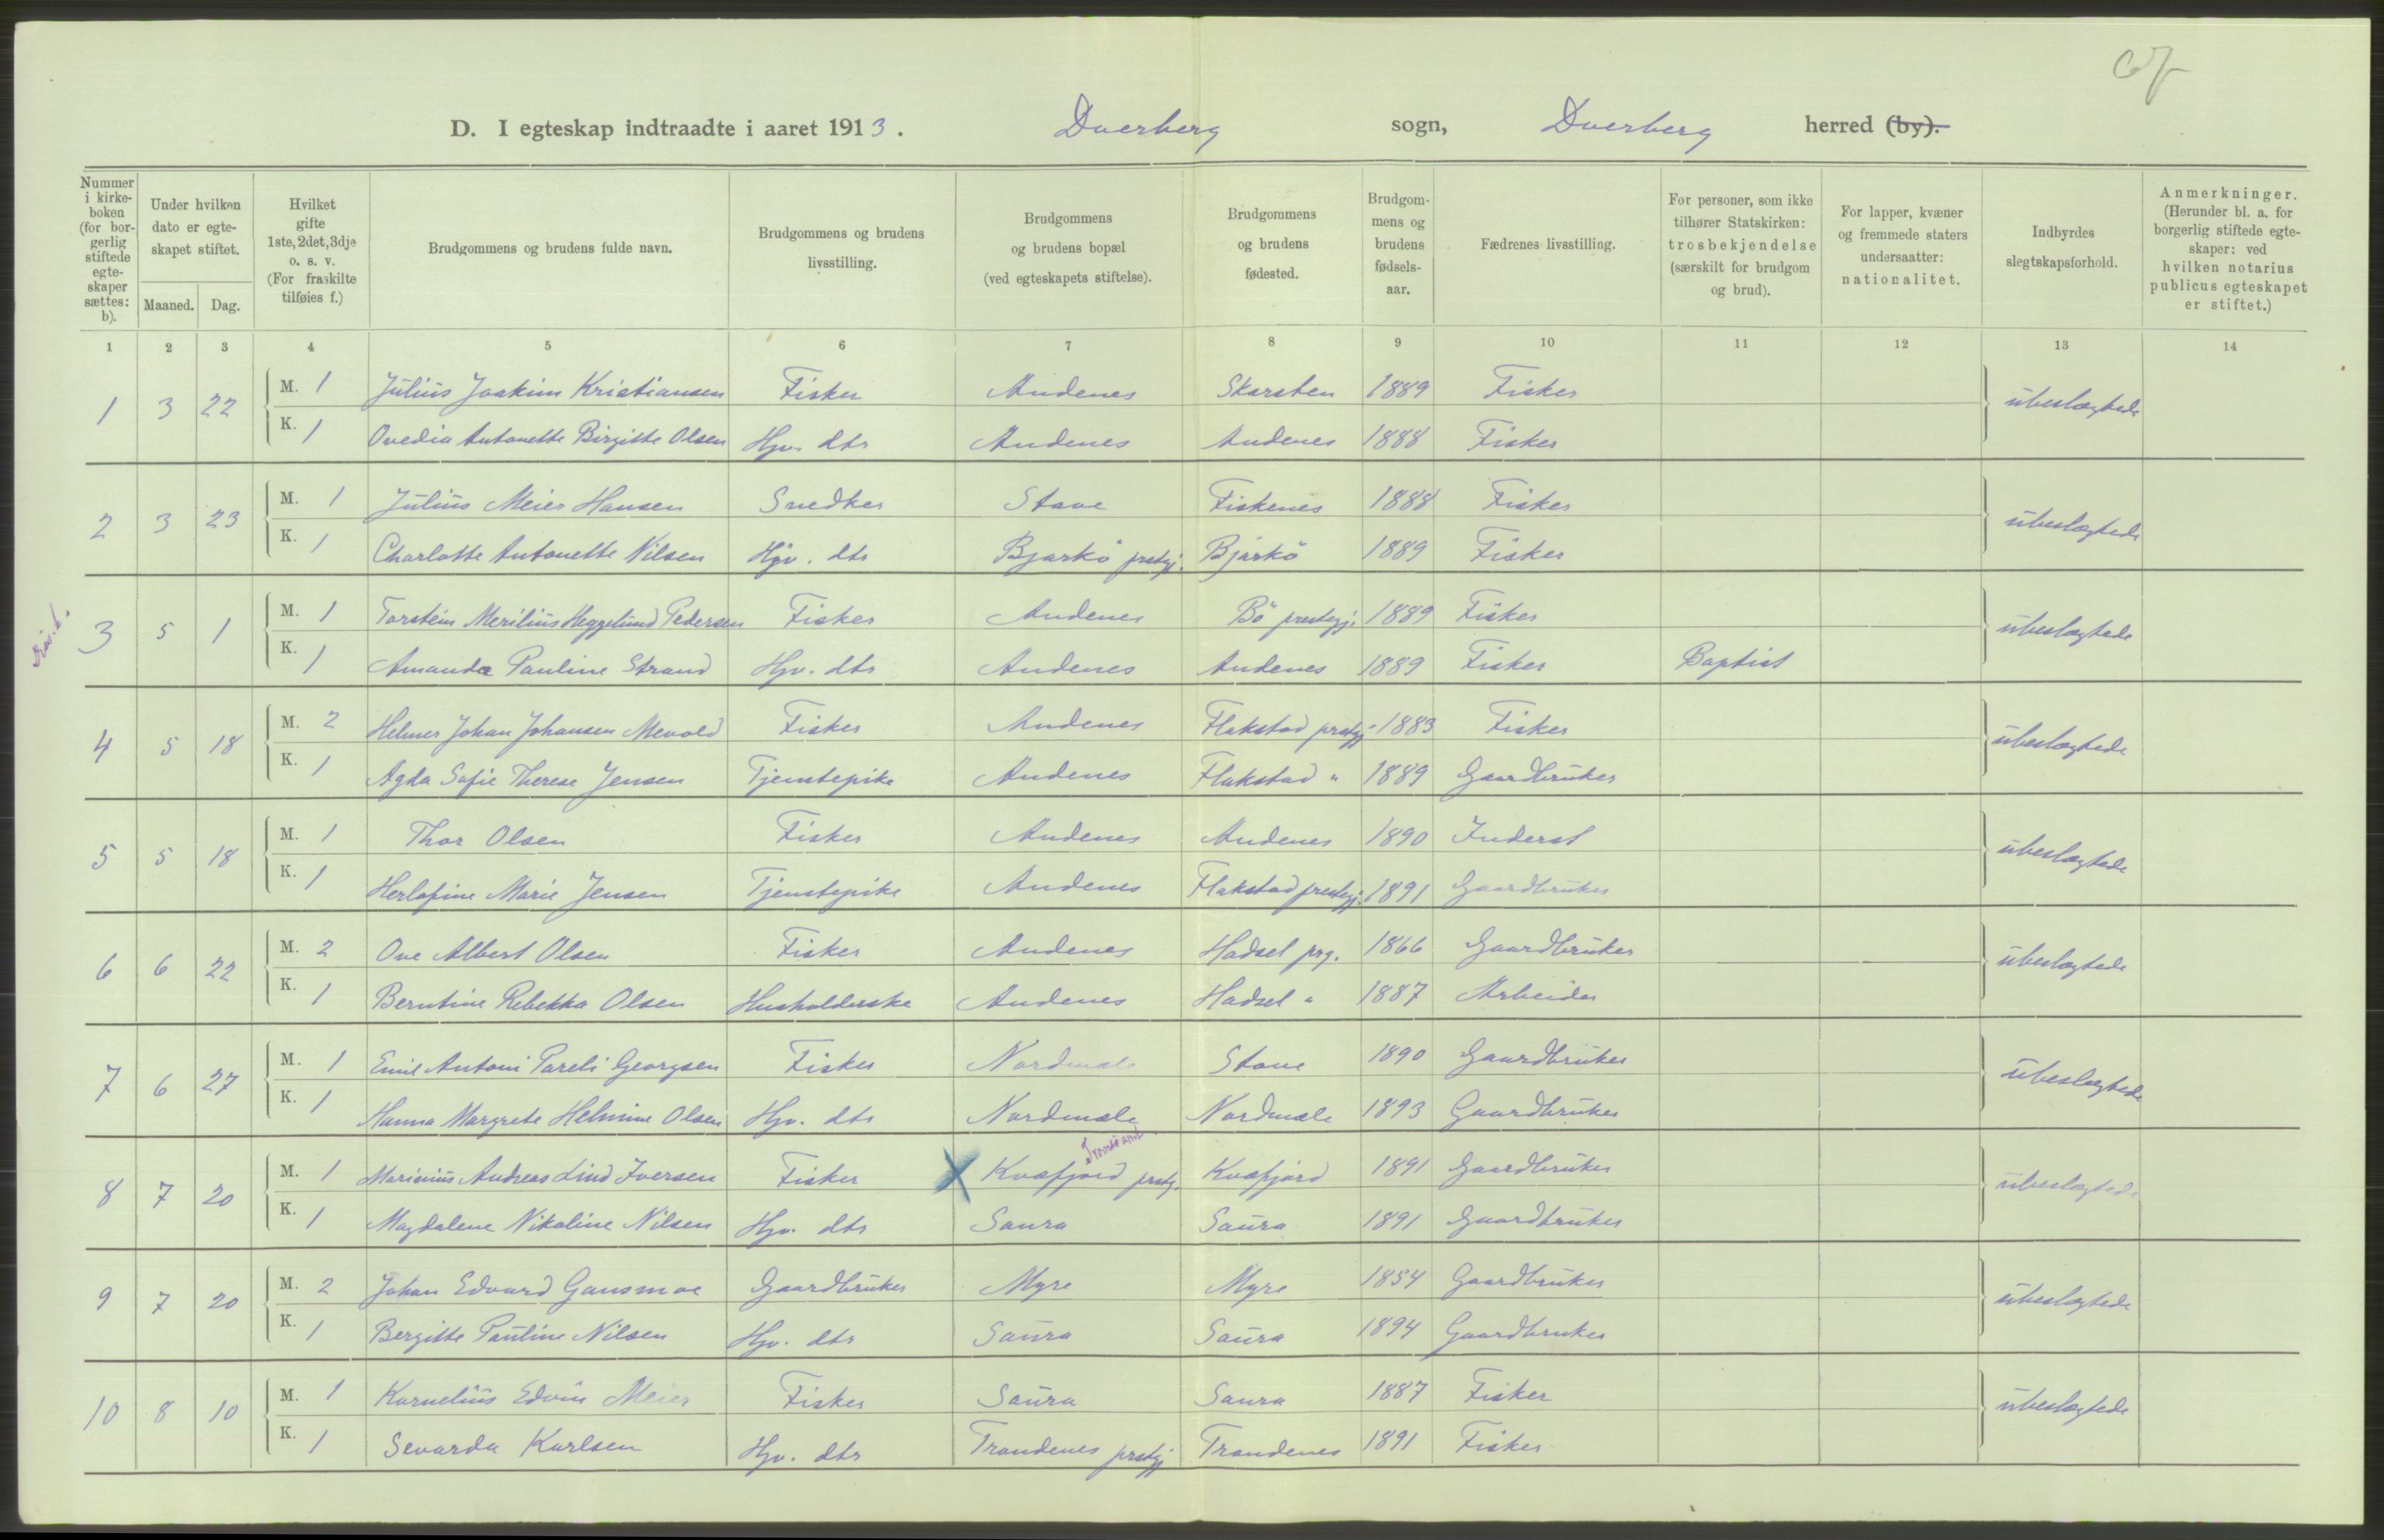 D. I egteskap indtraadte i aaret 1913. Dverberg sogn, Dverberg herred (by).
Nummer i kirkeboken (for borgerlig stiftede egteskaper sættes: b).
Under hvilken dato er egteskapet stiftet.
Maaned. Dag.
Hvilket gifte 1ste, 2det, 3dje o. s. v. (For fraskilte tilføies f.)
Brudgommens og brudens fulde navn.
Brudgommens og brudens livsstilling.
Brudgommens og brudens bopæl (ved egteskapets stiftelse).
Brudgommens og brudens fødested.
Brudgommens og brudens fødselsaar.
Fædrenes livsstilling.
For personer, som ikke tilhører Statskirken: trosbekjendelse (særskilt for brudgom og brud).
For lapper, kvæner og fremmede staters undersaatter: nationalitet.
Indbyrdes slegtskapsforhold.
Anmerkninger. (Herunder bl. a. for borgerlig stiftede egteskaper: ved hvilken notarius publicus egteskapet er stiftet.)
1 2 3 4 5 6 7 8 9 10 11 12 13 14
1 3 22 M. 1 Julius Joakim Kristiansen Fisker Andenes Skarsten 1889 Fisker ubeslægtede
K. 1 Ovedia Antonette Birgitte Olsen Hjv. dtr Andenes Andenes 1888 Fisker
2 3 23 M. 1 Julius Meier Hansen Snedker Stave Fiskenes 1888 Fisker ubeslægtede
K. 1 Charlotte Antonette Nilsen Hjv. dtr Bjarkö prestgj. Bjarkö 1889 Fisker
3 5 1 M. 1 Torstein Merilius Heggelund Pedersen Fisker Andenes Bö prestegj. 1889 Fisker ubeslægtede
K. 1 Amanda Pauline Strand Hjv. dtr Andenes Andenes 1889 Fisker Baptist
4 5 18 M. 2 Helmer Johan Johansen Mevold Fisker Andenes Flakstad prestgj. 1883 Fisker ubeslægtede
K. 1 Agda Sofie Therese Jensen Tjenstepike Andenes Flakstad " 1889 Gaardbruker
5 5 18 M. 1 Thor Olsen Fisker Andenes Andenes 1890 Inderst ubeslægtede
K. 1 Herlofine Marie Jensen Tjenstepike Andenes Flakstad prestegj. 1891 Gaardbruker
6 6 22 M. 2 Ove Albert Olsen Fisker Andenes Hadsel prg. 1866 Gaardbruker ubeslægtede
K. 1 Berntine Rebekka Olsen Husholderske Andenes Hadsel " 1887 Arbeider
7 6 27 M. 1 Emil Antoni Pareli Georgsen Fisker Nordmele Stave 1890 Gaardbruker ubeslægtede
K. 1 Hanna Margrete Helmine Olsen Hjv. dtr Nordmele Nordmele 1893 Gaardbruker
Tromsö amt
8 7 20 M. 1 Marinius Andreas Lind Iversen Fisker X Kvæfjord prstg. Kvæfjord 1891 Gaardbruker ubeslægtede
K. 1 Magdalene Nikoline Nilsen Hjv. dtr Saura Saura 1891 Gaardbruker
9 7 20 M. 2 Johan Edvard Gansmoe Gaardbruker Myre Myre 1854 Gaardbruker ubeslægtede
K. 1 Bergitte Pauline Nilsen Hjv. dtr Saura Saura 1894 Gaardbruker
10 8 10 M. 1 Kornelius Edvin Meier Fisker Saura Saura 1887 Fisker ubeslægtede
K. 1 Sevarda Karlsen Hjv. dtr Trondenes prestgj Trondenes 1891 Fisker